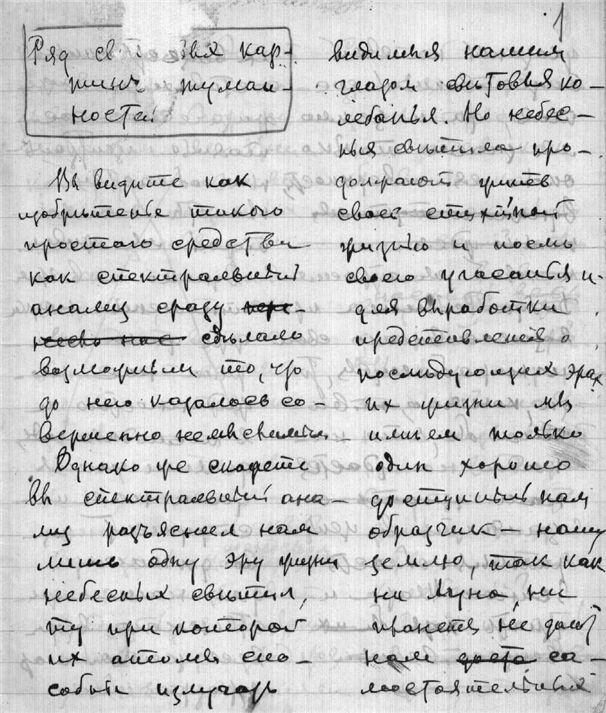 1
Ряд св   ивыя кар-
тинъ туман-
ности.
Вы видите как
изобрѣтенiе такого
простого средства
как спектральный
анализ сразу
сдѣлало
возможным то, что
до него казалось со-
вершенно немыслимым.
Однако же скажете
вы спектральный ана-
лиз разъяснил нам
лишь одну эру жизни
небесных свѣтил,
ту при которой
их атомы спо-
собны излучать
видимыя нашим
глазом свѣтовыя ко-
лебанья. Но небес-
ныя свѣтила про-
должают жить
своей стихiйной
жизнью и послѣ
своего угасанья и
для выработки
представленiя о
послѣдующих эрах
их жизни мы
имѣем только
один хорошо
доступный нам
образчик — нашу
землю, так как
ни луна, ни
планеты не дают
нам са-
мостоятельных